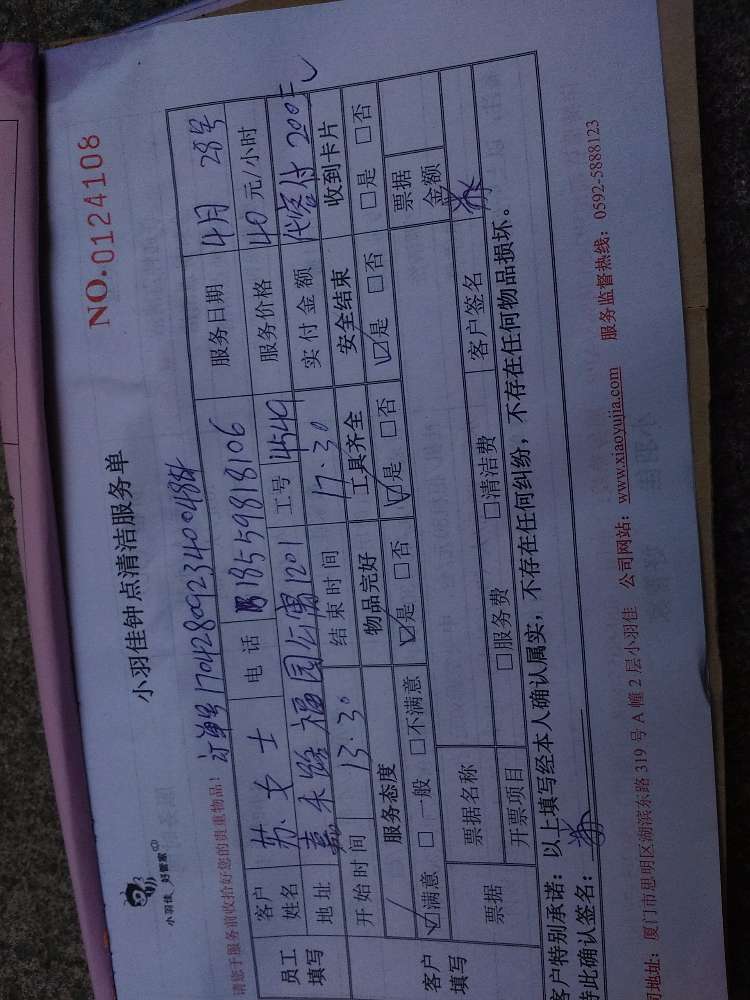 小羽佳 好管家
小羽佳钟点清洁服务单
NO.0124108
请您于服务前收拾好您的贵重物品!
订单号170428092340048
员工填写
客户姓名 苏女士 电话 18559818106 服务日期 4月28号
地址 嘉禾路福园公寓1201 工号 4549 服务价格 40元/小时
开始时间 13.30 结束时间 17.30 实付金额 代客付200元
客户填写
服务态度 物品完好 工具齐全 安全结束 收到卡片
☑满意 □一般 □不满意 ☑是 □否 ☑是 □否 ☑是 □否 □是 □否
票据 票据名称 票据金额
开票项目 □服务费 □清洁费 客户签名
客户特别承诺:以上填写经本人确认属实,不存在任何纠纷,不存在任何物品损坏。
特此确认签名:
地址:厦门市思明区湖滨东路319号A幢2层小羽佳 公司网站:www.xiaoyujia.com 服务监督热线:0592-5888123